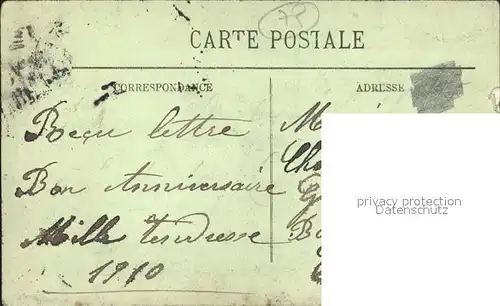 77
CARTE POSTALE
CORRESPONDANCE
ADRESSE
Reçu lettre
Bon Anniversaire
Mille tendresse
1910
privacy protection
Datenschutz